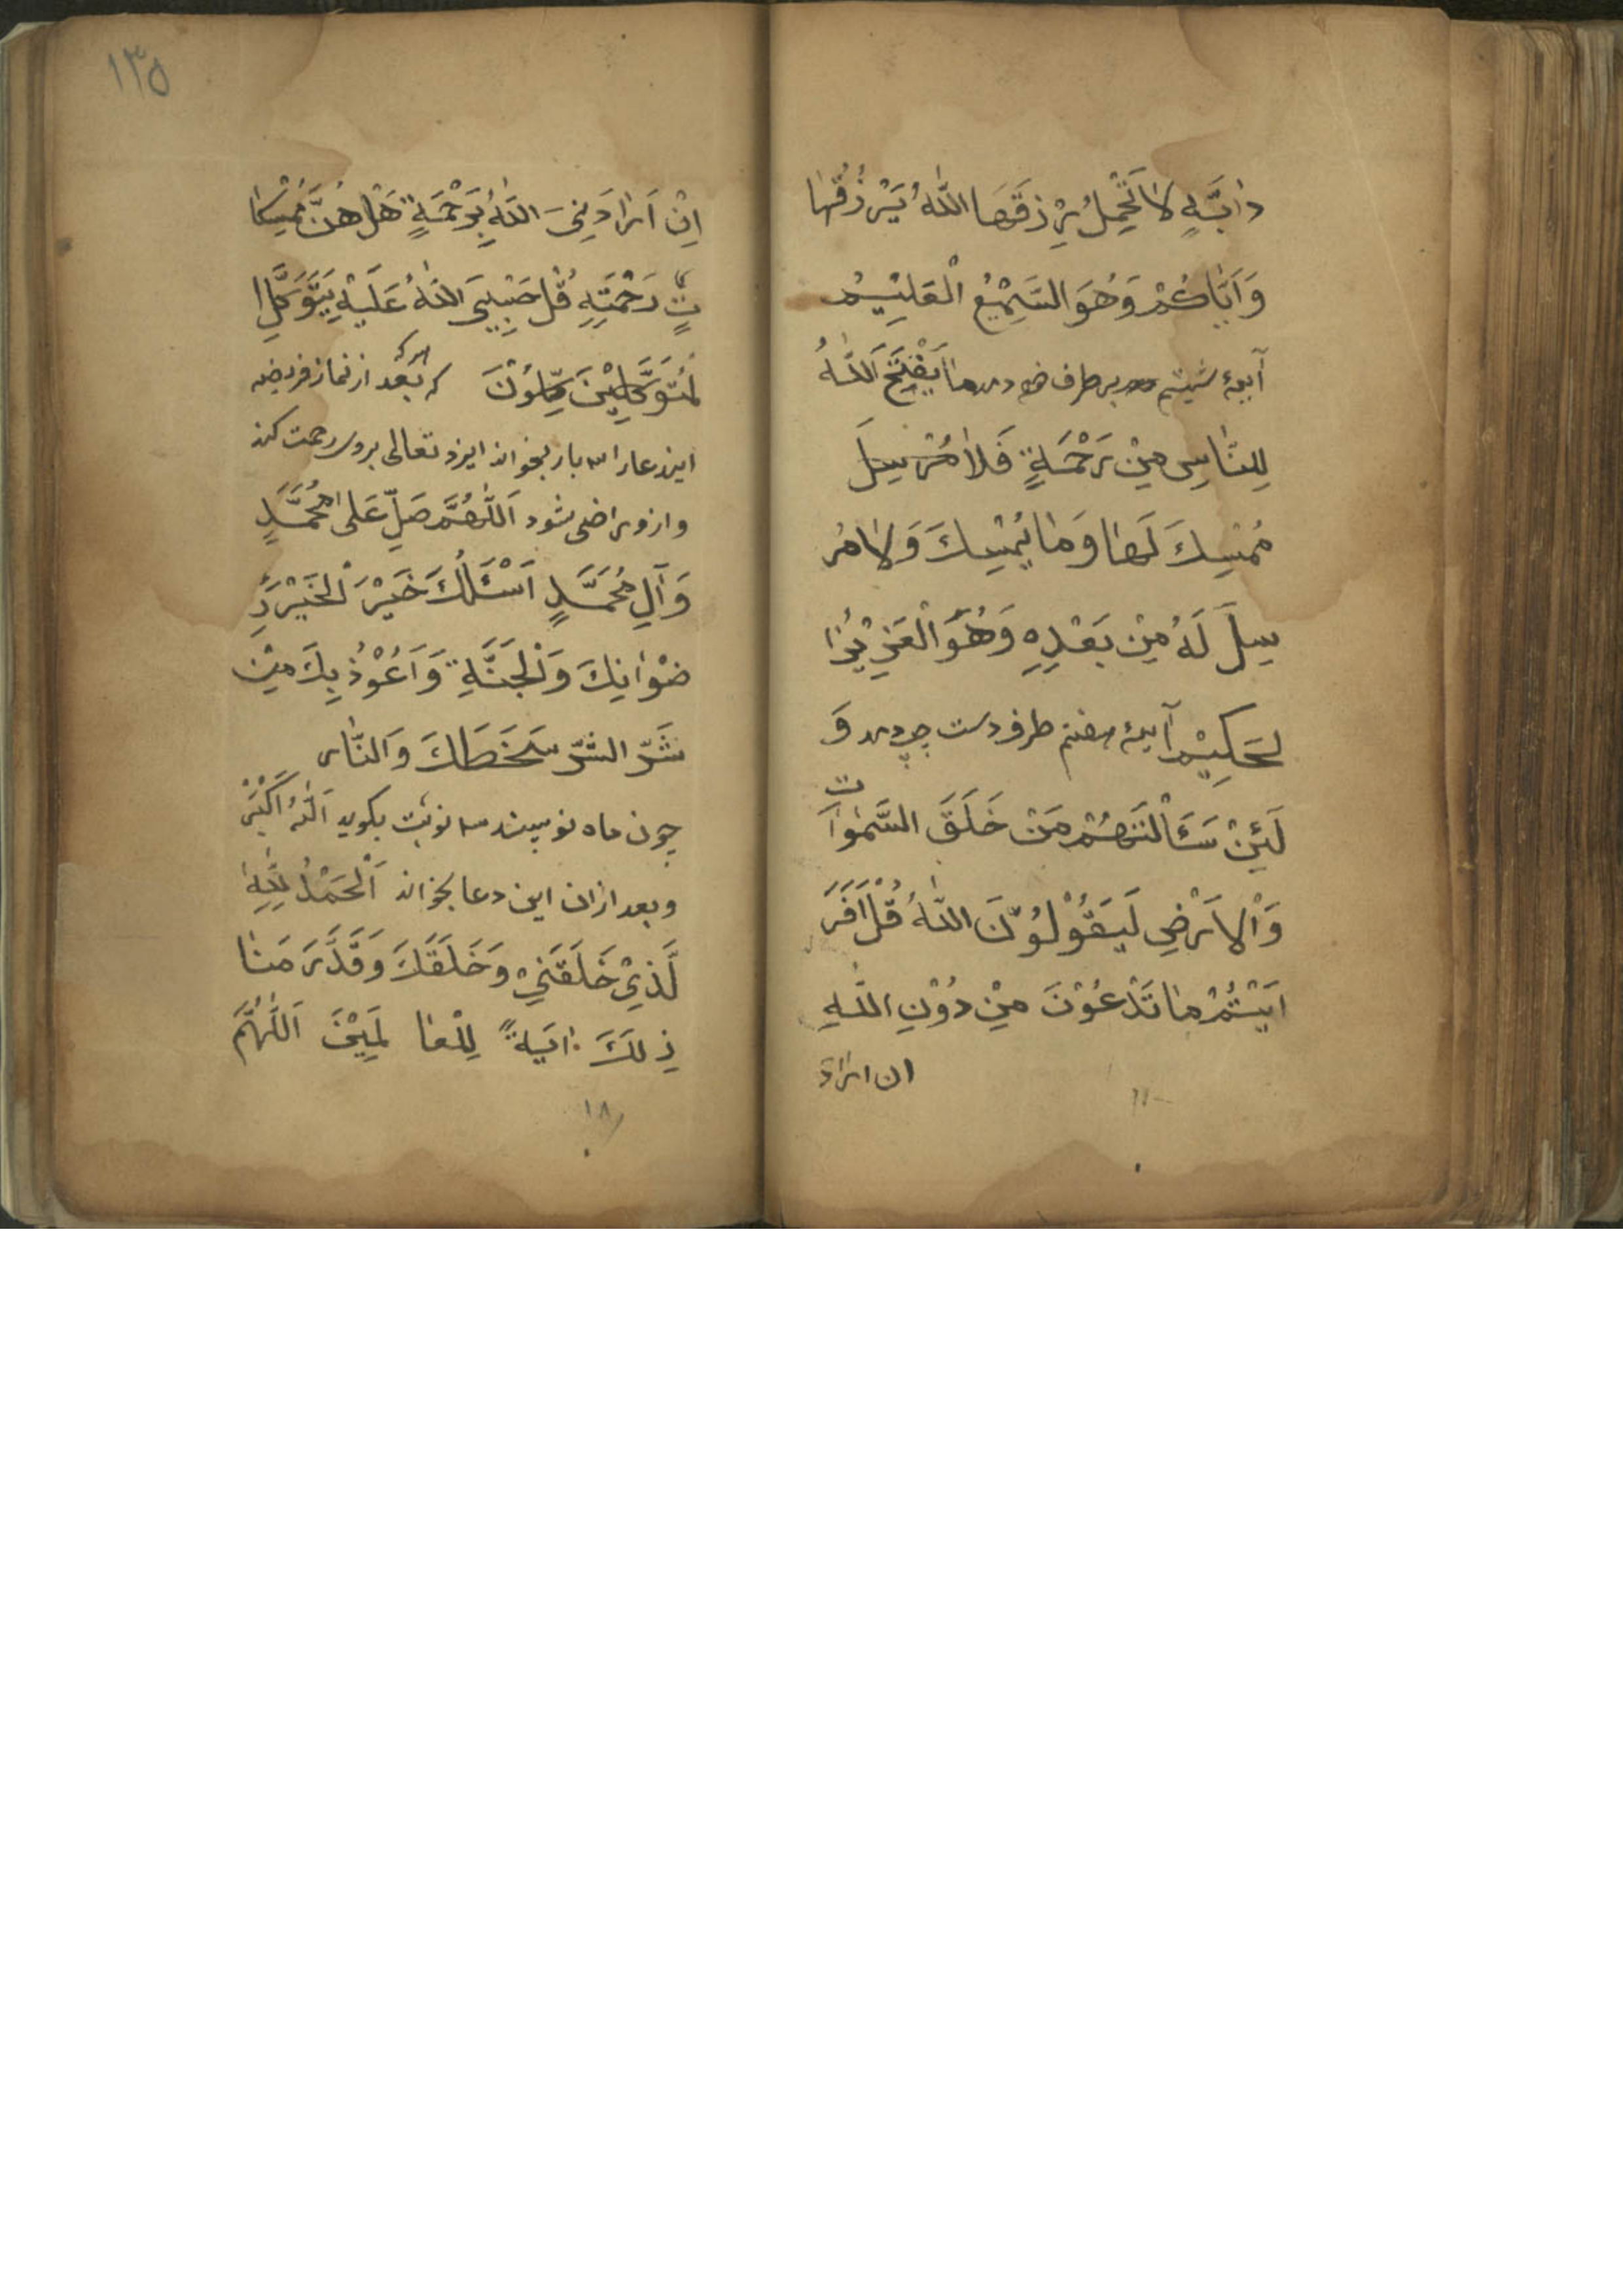 دٰابَّةٍ لاٰ تَحْمِلُ رِزْقَهَا اللّٰهُ يَرْزُقُهٰا
وَاَيّٰاكُمْ وَهُوَ السَّمِيْعُ الْعَلِيْمُ
آیهٔ ششم بر طرف دمد مٰا يَفْتَحُ اَللّٰهُ
لِلنّٰاسِ مِنْ رَحْمَةٍ فَلاٰ مُرْسِلَ
مُمْسِكَ لَهٰا وَمٰا يُمْسِكَ وَلاٰ مُر
سِلَ لَهُ مِنْ بَعْدِهِ وَهُوَ الْعَزِيْزُ ا
لحَكِيْم آیهٔ هفتم طرف دست چپ دمد وَ
لَئِنْ سَئَالْتَهُمْ مَنْ خَلَقَ السَّمٰوٰات
وَالْاَرْضِ لَيَقُوْلُوُنَّ اللّٰهُ قُلْ اَفَرَ
اَيْتُمْ مٰا تَدْعُوْنَ مِنْ دُوْنِ اللّٰهِ
ان اراد
١٣٥
اِنْ اَرٰادَنِيَ اللّٰهُ بِرَحْمَةٍ هَلْ هُنَّ مُمْسِكٰا
تٍ رَحْمَتِهِ قُلْ حَسْبِيَ اللّٰهُ عَلَيْهِ يَتَوَكَّلِ ا
لمُتَوَكِّلِيْنَ كِلّوُنَ هر که بَعد از نماز فریضه
ایندعا را سه بار بخواند ایزد تعالی بروی رحمت کند
و ازوی راضی شود اَللّٰهُمَّ صَلِّ عَلٰى مُحَمَّدٍ
وَآلِ مُحَمَّدٍ اَسْئَلُكَ خَيْرَ الْخَيْرِ رِ
ضْوٰانِكَ وَالْجَنَّةِ وَاَعُوْذُ بِكَ مِنْ
شَرِّ الشَّرِّ سَخَطِكَ وَالنّٰار
چون ماه نو بیند سه نوبت بگوید اَللّٰهُ اَكْبَرْ
و بعد ازان این دعا بخواند اَلْحَمْدُ لِلّٰهِ ا
لَّذِيْ خَلَقَنِيْ وَخَلَقَكَ وَقَدَّرَ مَنٰا
ذِلَكَ اٰيَةً لِلْعٰا لَمِيْنَ اَللّٰهُمَّ
١٨